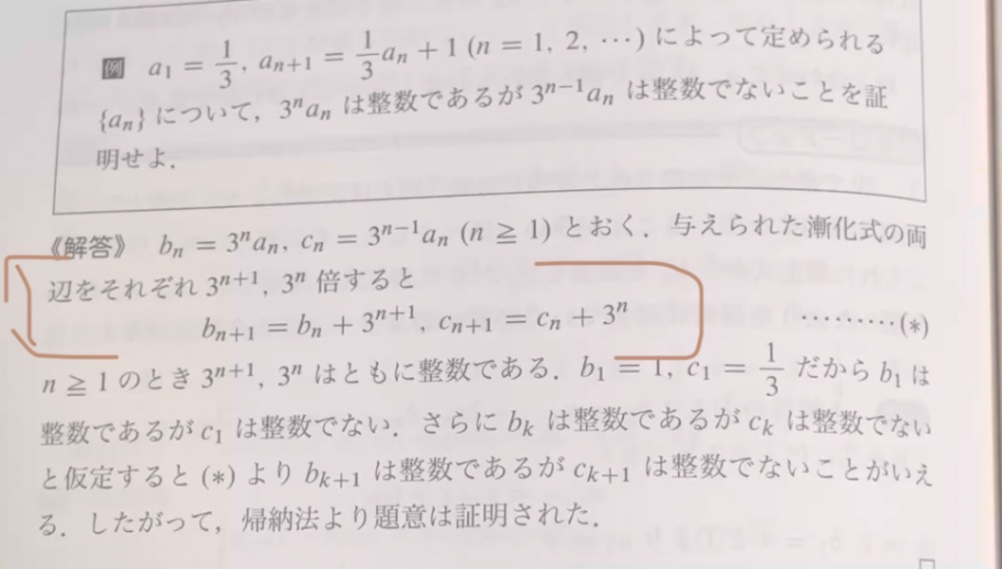 例 a₁ = 1/3, aₙ₊₁ = 1/3 aₙ + 1 (n = 1, 2, ⋯) によって定められる
{aₙ} について, 3ⁿaₙ は整数であるが 3ⁿ⁻¹aₙ は整数でないことを証
明せよ.
《解答》 bₙ = 3ⁿaₙ, cₙ = 3ⁿ⁻¹aₙ (n ≧ 1) とおく. 与えられた漸化式の両
辺をそれぞれ 3ⁿ⁺¹, 3ⁿ 倍すると
bₙ₊₁ = bₙ + 3ⁿ⁺¹, cₙ₊₁ = cₙ + 3ⁿ ⋯⋯⋯(*)
n ≧ 1 のとき 3ⁿ⁺¹, 3ⁿ はともに整数である. b₁ = 1, c₁ = 1/3 だから b₁ は
整数であるが c₁ は整数でない. さらに bₖ は整数であるが cₖ は整数でない
と仮定すると (*) より bₖ₊₁ は整数であるが cₖ₊₁ は整数でないことがいえ
る. したがって, 帰納法より題意は証明された.